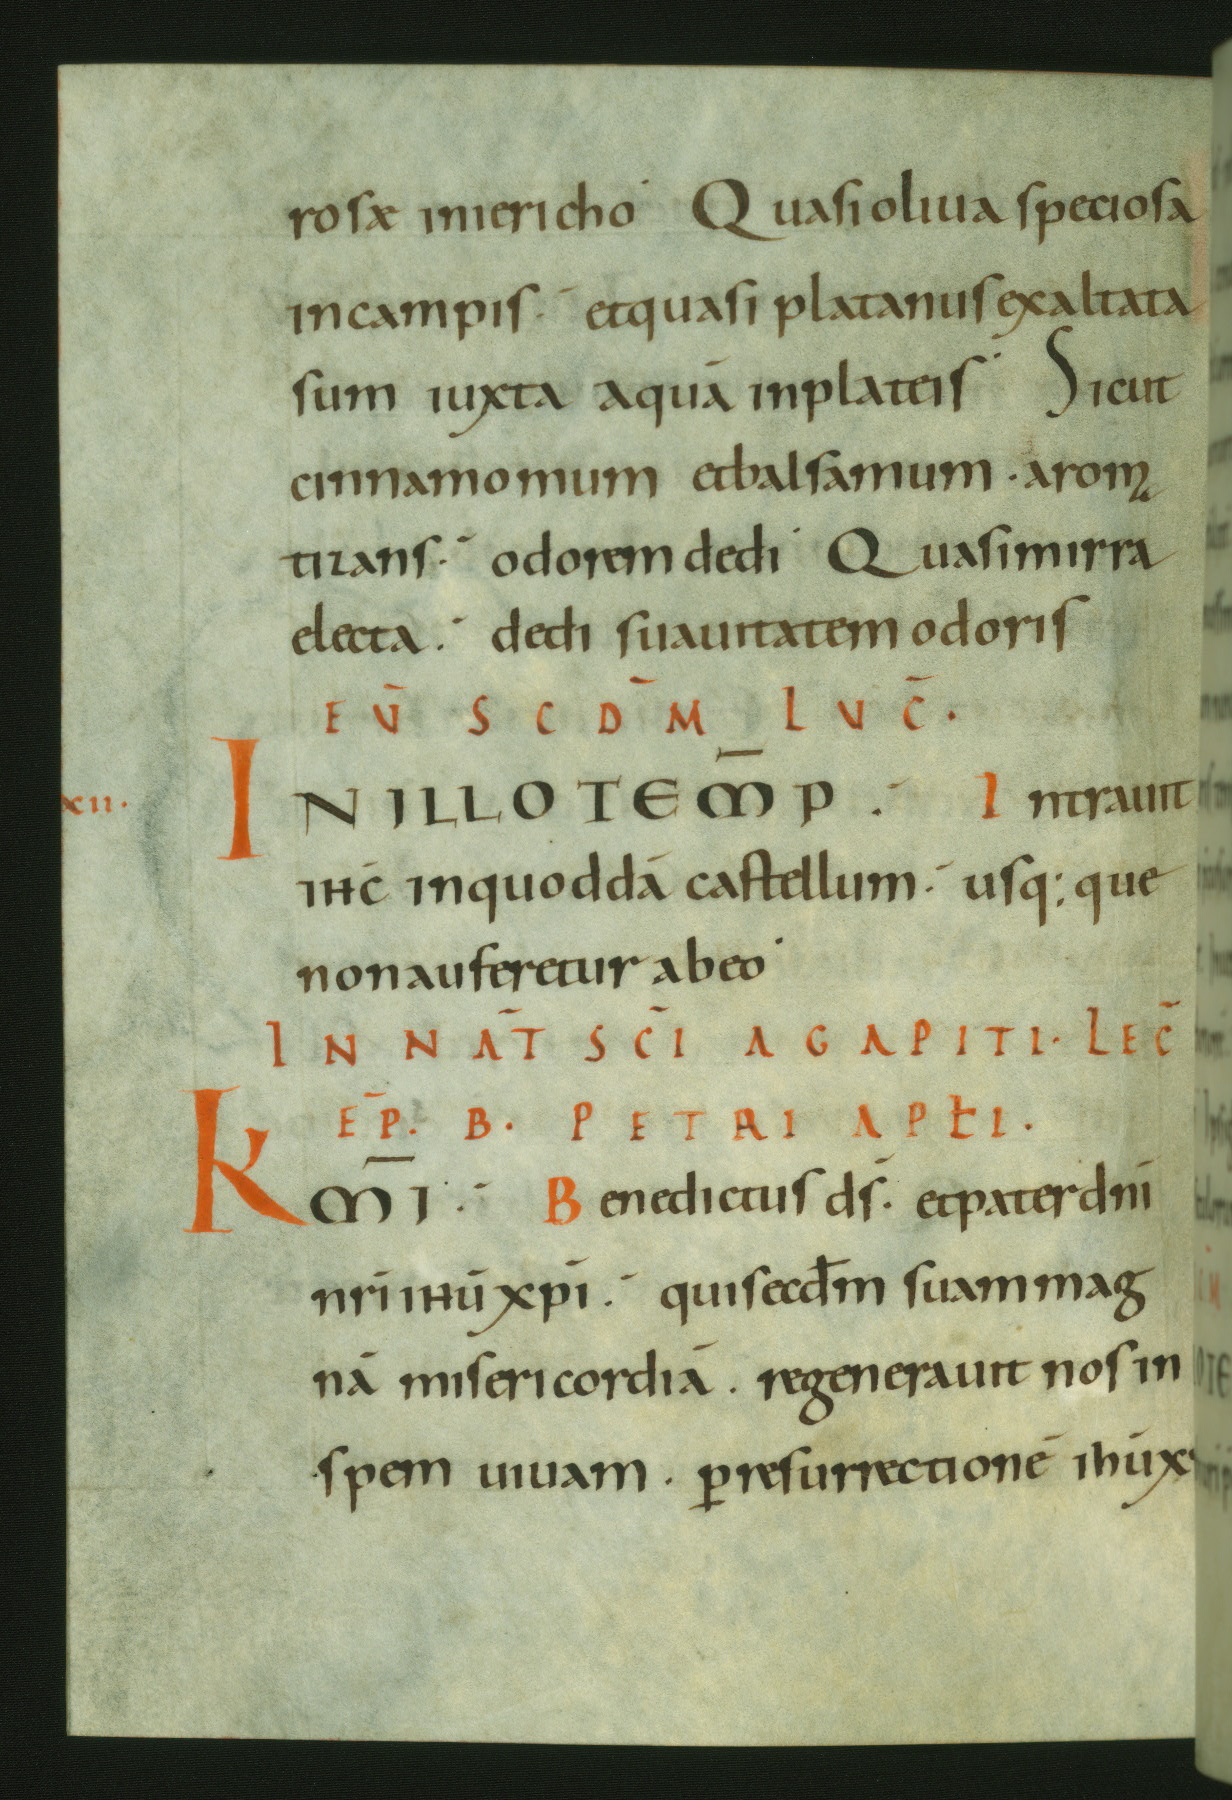 rosæ inierichoˑ Quasi oliua speciosa
incampis·´ etquasi platanus exaltata
sum iuxta aquā inplateisˑ Sicut
cinnamomum etbalsamum · arom̨
tizans·´ odorem dediˑ Quasi mirra
electa.´ dedi suauitatem odoris
EṼ SCDM̄ LVC̄·
xii· INILLOTEM̄P .´ Intrauit
ihc̄ inquoddā castellum·´ usq; que
nonauferetur abeoˑ
IN NAT̄ SC̄I AGAPITI· LEC̄
EP̄. B. PETRI APŁI.
KM̄I·´ Benedictus ds̄· etpater dn̄i
nr̄i ihū xp̄i.´ quisecđm suam mag
nā misericordiā. regenerauit nos in
spem uiuam. ꝑresurrectionē ihūx